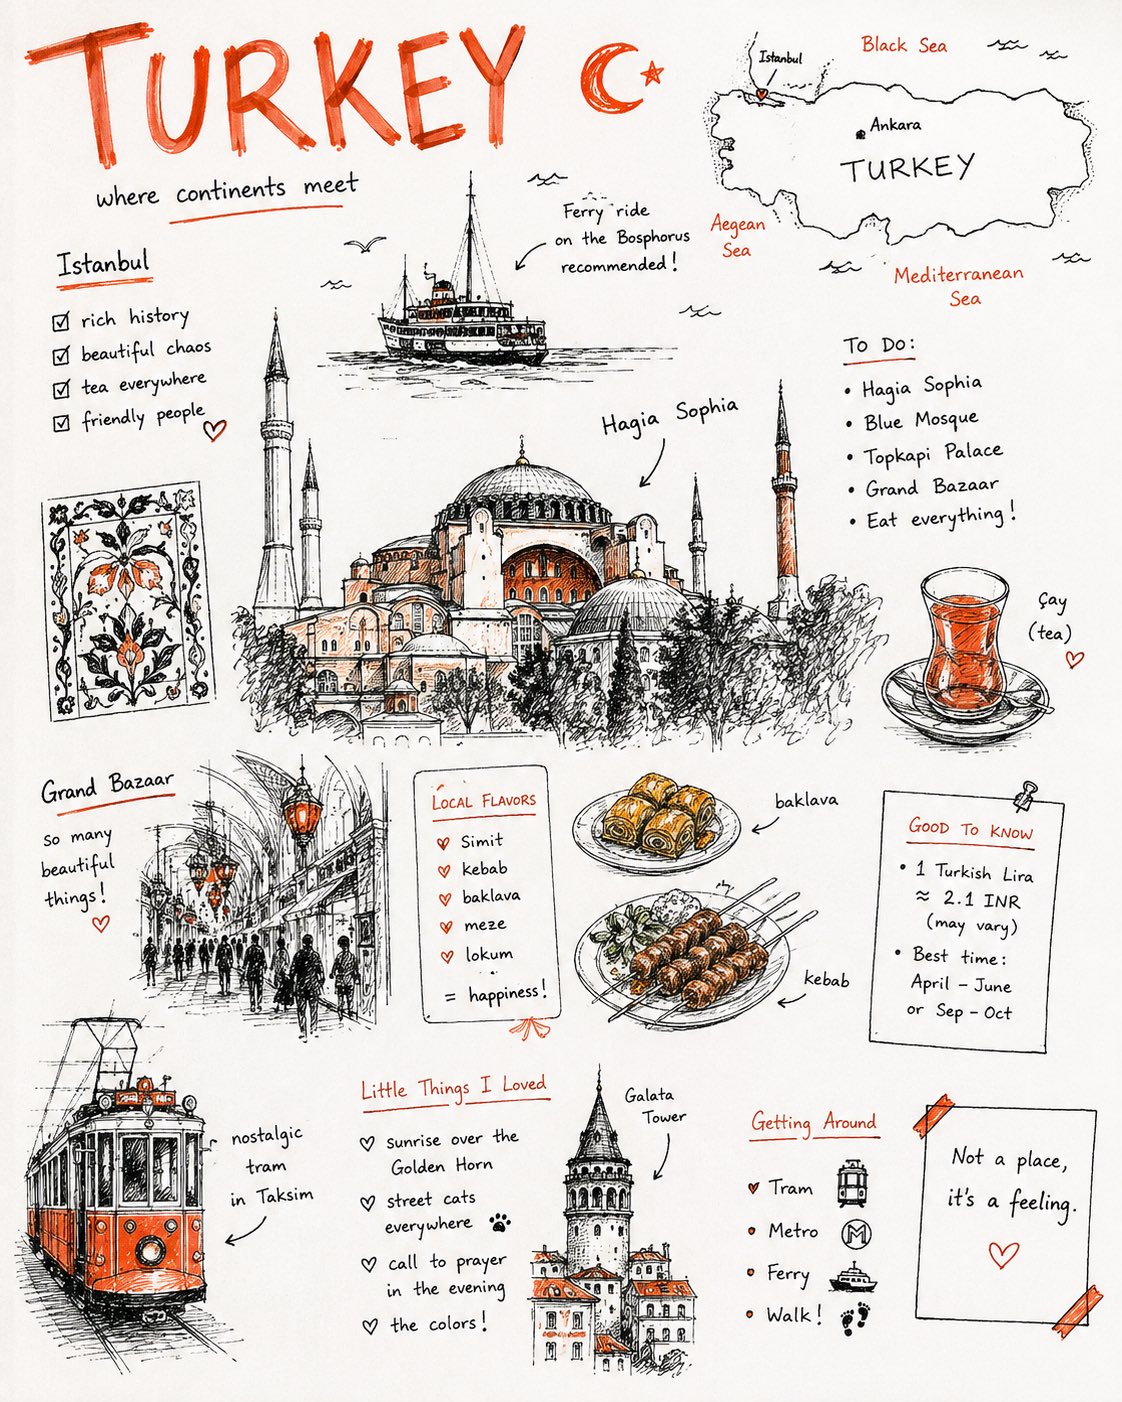 TURKEY
where continents meet
Istanbul
Black Sea
Ankara
TURKEY
Aegean
Sea
Mediterranean
Sea
Ferry ride
on the Bosphorus
recommended!
Istanbul
rich history
beautiful chaos
tea everywhere
friendly people
Hagia Sophia
To Do:
• Hagia Sophia
• Blue Mosque
• Topkapi Palace
• Grand Bazaar
• Eat everything!
çay
(tea)
Grand Bazaar
so many
beautiful
things!
LOCAL FLAVORS
Simit
kebab
baklava
meze
lokum
= happiness!
baklava
kebab
GOOD TO KNOW
• 1 Turkish Lira
≈ 2.1 INR
(may vary)
• Best time:
April – June
or Sep – Oct
nostalgic
tram
in Taksim
Little Things I Loved
sunrise over the
Golden Horn
street cats
everywhere
call to prayer
in the evening
the colors!
Galata
Tower
Getting Around
Tram
Metro
M
Ferry
Walk!
Not a place,
it's a feeling.